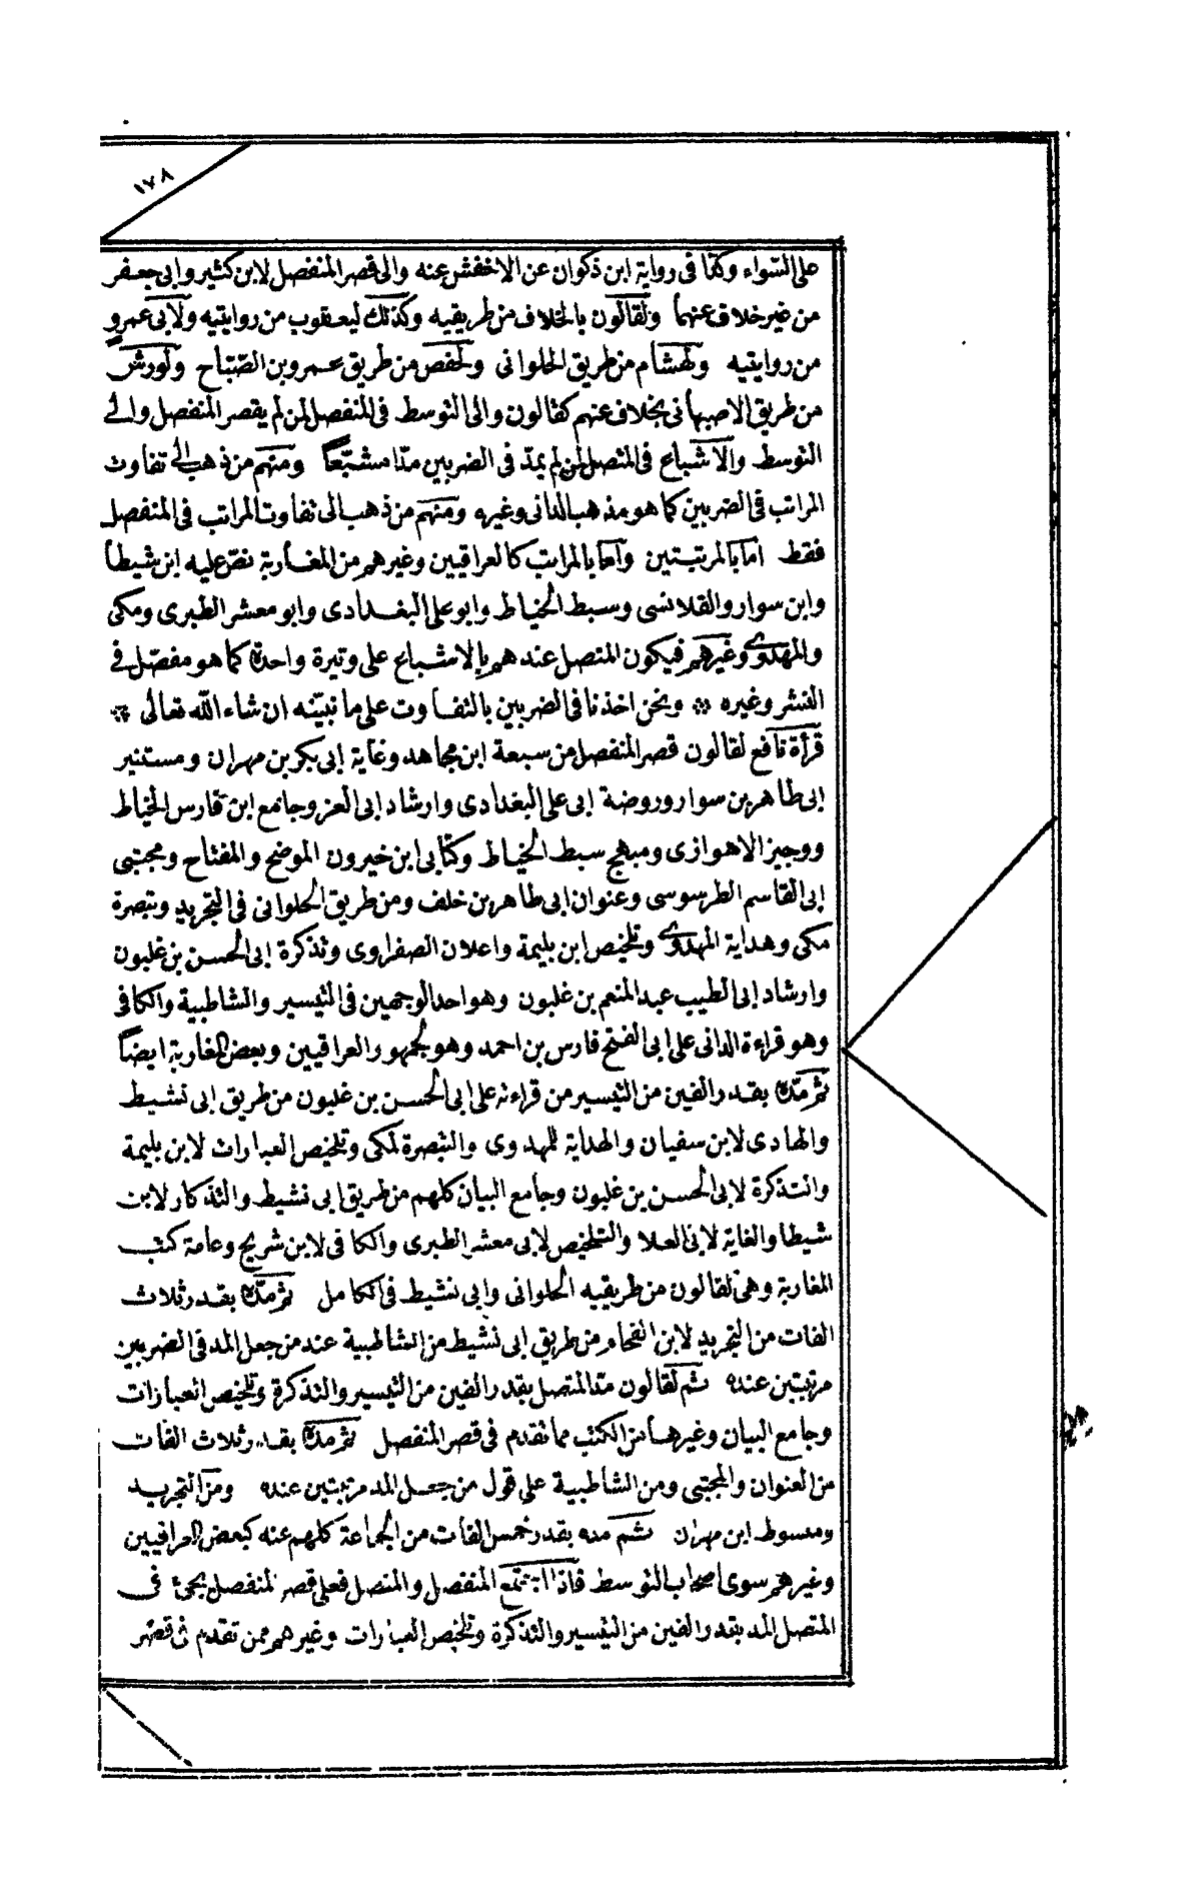 ١٧٨
على السّواء وكذا فى رواية ابن ذكوان عن الاخفش عنه والى قصر المنفصل لابن كثير وابى جعفر
من غير خلاف عنهما ولقالون بالخلاف من طريقيه وكذلك ليعقوب من روايتيه ولابى عمرو
من روايتيه ولهشام من طريق الحلوانى ولحفص من طريق عمرو بن الصّبّاح ولورش
من طريق الاصبهانى بخلاف عنهم كقالون والى التوسط فى المنفصل لمن لم يقصر المنفصل والى
التوسط والاشباع فى المتصل لمن لم يمد فى الضربين مدّا مشبّعاً ومنهم من ذهب الى تفاوت
المراتب فى الضربين كما هو مذهب الدانى وغيره ومنهم من ذهب الى تفاوت المراتب فى المنفصل
فقط اما بالمرتبتين واما بالمراتب كالعراقيين وغيرهم من المغاربة نصّ عليه ابن شيطا
وابن سوار والقلانسى وسبط الخياط وابو على البغدادى وابو معشر الطبرى ومكى
والمهدوى وغيرهم فيكون المتصل عندهم بالاشباع على وتيرة واحدة كما هو مفصّل فى
النشر وغيره ونحن اخذنا فى الضربين بالتفاوت على ما نبيّنه ان شاء الله تعالى
قرأة نافع لقالون قصر المنفصل من سبعة ابن مجاهد وغاية ابى بكر بن مهران ومستنير
ابى طاهر بن سوار وروضة ابى على البغدادى وارشاد ابى العز وجامع ابن فارس الخياط
ووجيز الاهوازى ومبهج سبط الخياط وكتابى ابن خيرون الموضح والمفتاح ومجتبى
ابى القاسم الطرسوسى وعنوان ابى طاهر بن خلف ومن طريق الحلوانى فى التجريد وتبصرة
مكى وهداية المهدوى وتلخيص ابن بليمة واعلان الصفراوى وتذكرة ابى الحسن بن غلبون
وارشاد ابى الطيب عبد المنعم بن غلبون وهو احد الوجهين فى التيسير والشاطبية والكافى
وهو قراءة الدانى على ابى الفتح فارس بن احمد وهو لجمهور العراقيين وبعض المغاربة ايضاً
ثم مدّه بقدر الفين من التيسير من قراءته على ابى الحسن بن غلبون من طريق ابى نشيط
والهادى لابن سفيان والهداية للمهدوى والتبصرة لمكى وتلخيص العبارات لابن بليمة
والتذكرة لابى الحسن بن غلبون وجامع البيان كلهم من طريق ابى نشيط والتذكار لابن
شيطا والغاية لابى العلا والتلخيص لابى معشر الطبرى والكافى لابن شريح وعامة كتب
المغاربة وهى لقالون من طريقيه الحلوانى وابى نشيط فى الكامل ثم مدّه بقدر ثلاث
الفات من التجريد لابن الفحام من طريق ابى نشيط من الشاطبية عند من جعل المد فى الضربين
مرتبتين عنده ثم لقالون مد المتصل بقدر الفين من التيسير والتذكرة وتلخيص العبارات
وجامع البيان وغيرها من الكتب مما تقدم فى قصر المنفصل ثم مده بقدر ثلاث الفات
من العنوان والمجتبى ومن الشاطبية على قول من جعل المد مرتبتين عنده ومن التجريد
ومبسوط ابن مهران ثم مده بقدر خمس الفات من الجماعة كلهم عنه كبعض العراقيين
وغيرهم سوى اصحاب التوسط فاذا اجتمع المنفصل والمتصل فعلى قصر المنفصل يجئ فى
المتصل المد بقدر الفين من التيسير والتذكرة وتلخيص العبارات وغيرهم ممن تقدم فى قصر